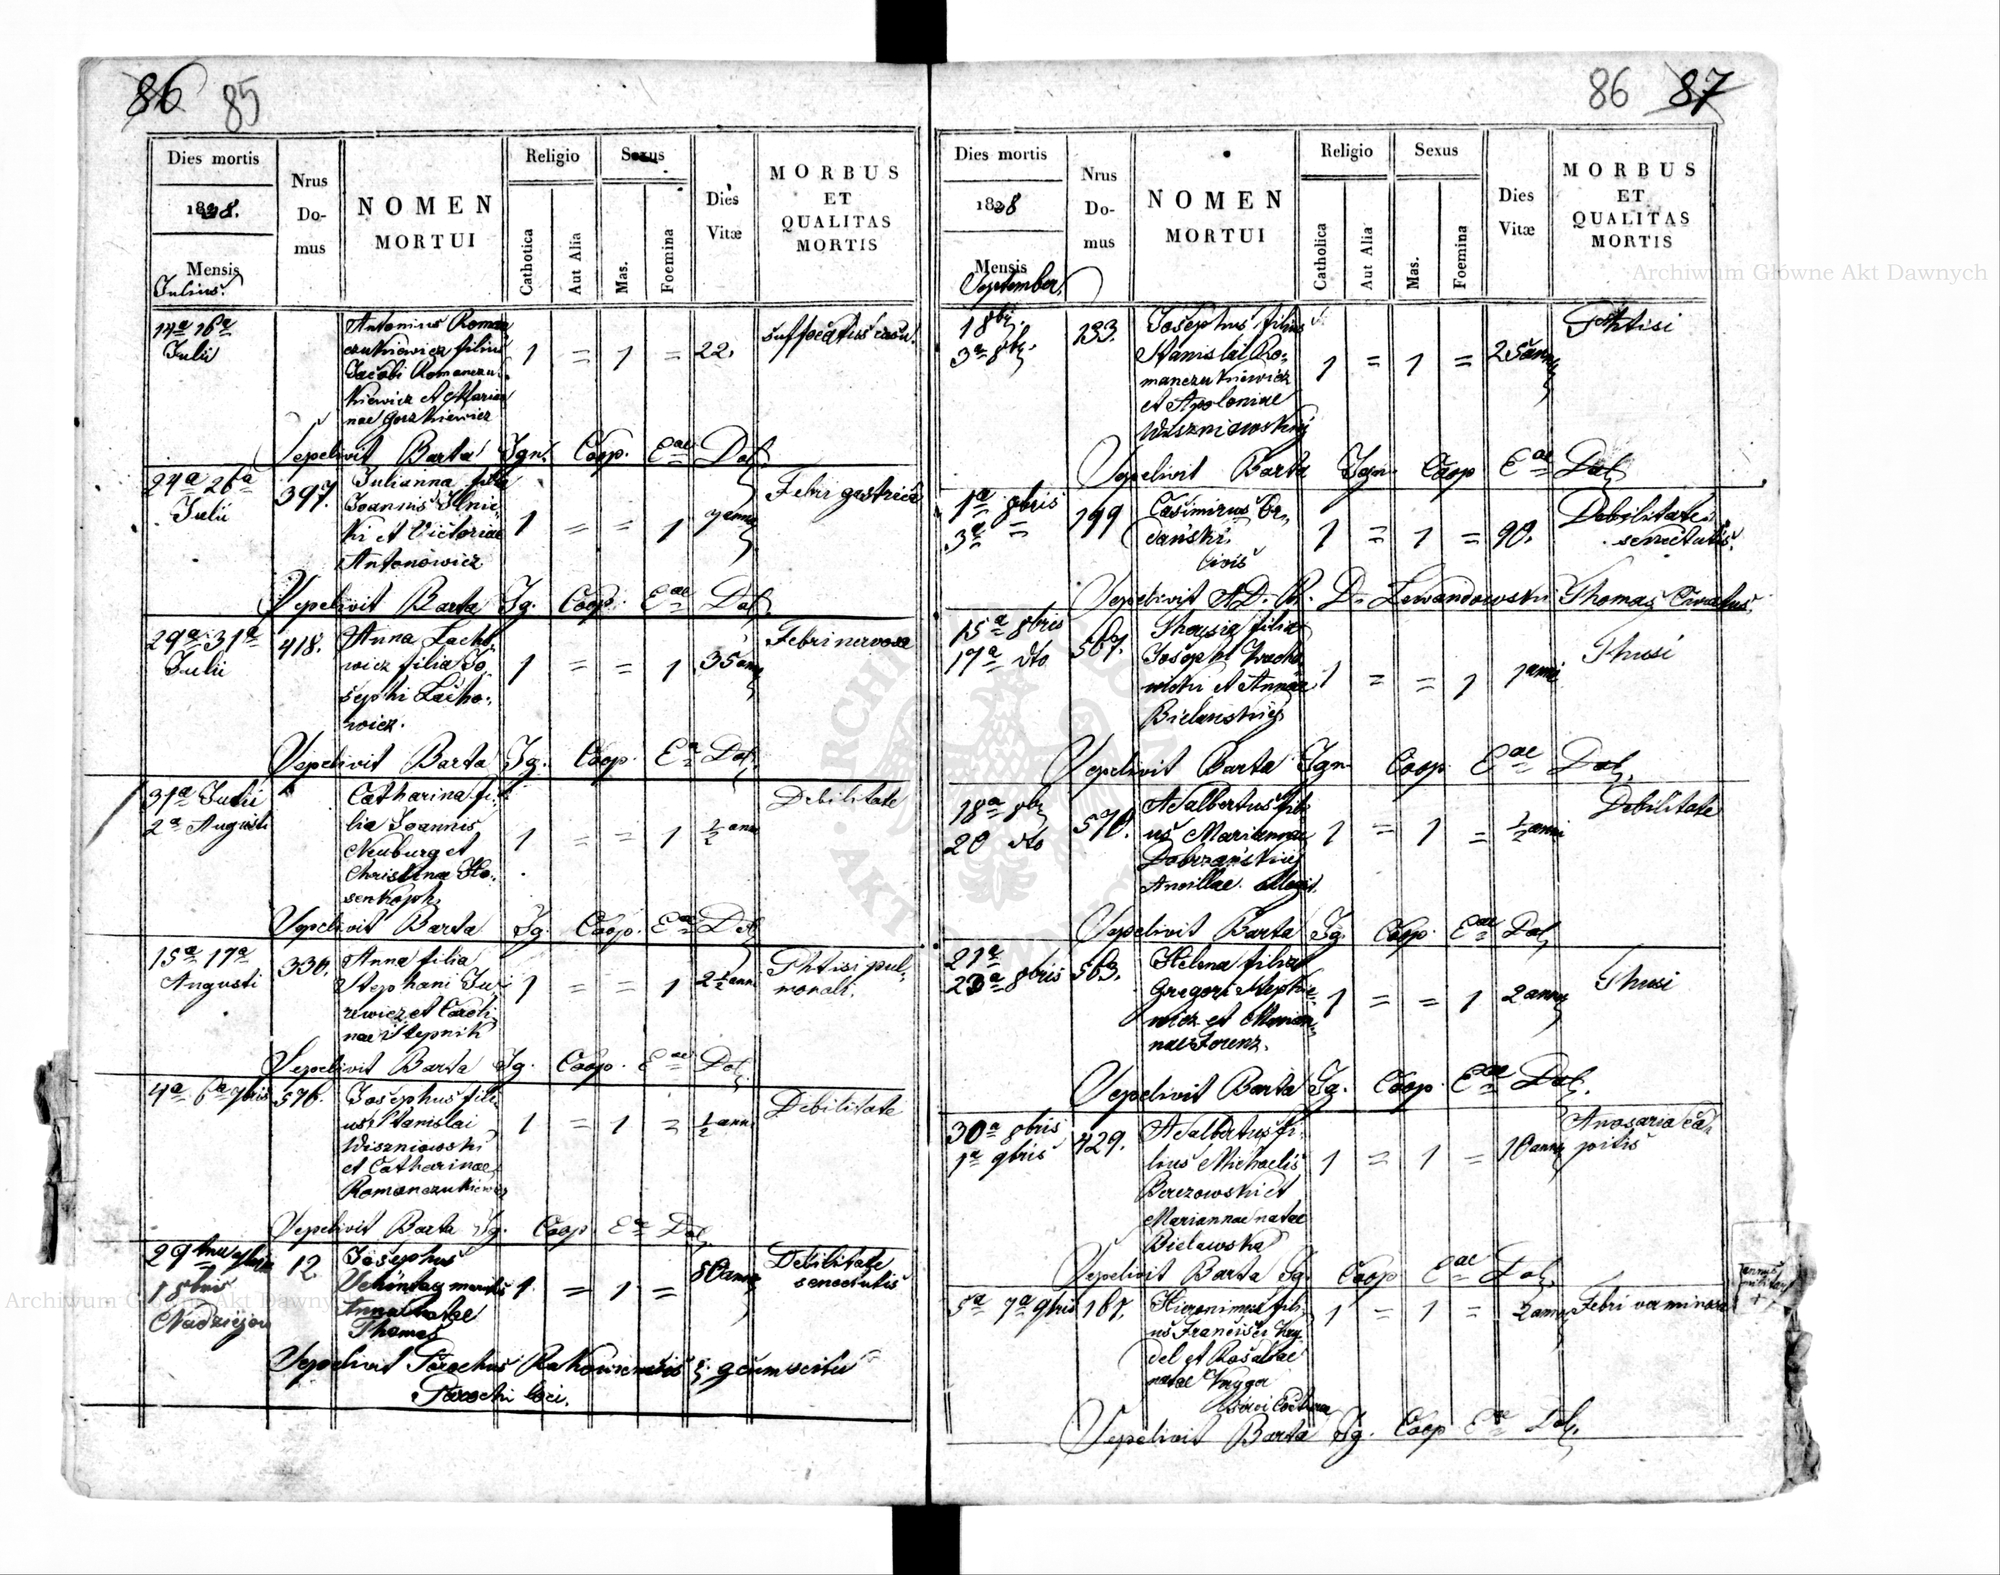 86 85
Dies mortis
1838.
Mensis
Julius.
Nrus
Do-
mus
NOMEN
MORTUI
Religio
Catholica
Aut Alia
Sexus
Mas.
Foemina
Dies
Vitæ
MORBUS
ET
QUALITAS
MORTIS
14ª 16ª
Julii
Antonius Roman
czukiewicz filius
Jacobi Romanczu-
kiewicz et Marian
nae Goszkiewicz
1 = 1 = 22.
suffocatus casu.
Sepelivit Barta Ign. Coop. Eae Dol.
24ª 26ª
Julii
397.
Julianna filia
Joannis Ilnic-
ki et Victoriae
Antonowicz
1 = = 1
7 anno
Febri gastrica
Sepelivit Barta Ig. Coop. Eae Dol.
29ª 31ª
Julii
418.
Anna Lacho
wicz filia Jo
sephi Lacho-
wicz.
1 = = 1
35 ann
Febri nervosa
Sepelivit Barta Ig. Coop. Eae Dol.
31ª Julii
2ª Augusti
Catharina fi-
lia Joannis
Neuburg et
Christinae
1 = = 1
½ anni
Debilitate
Sepelivit Barta Ig. Coop. Eae Dol
15ª 17ª
Augusti
330.
Anna filia
Stephani Ju
rewicz et Caroli
nae Stepnik
1 = = 1
2½ anni
Phtisi pul-
monali.
Sepelivit Barta Ig. Coop. Eae Dol.
4ª 6ª 7bris
576.
Josephus fili-
us Stanislai
Wiszniowski
et Catharinae
Romanczukiewicz
1 = 1 =
½ anni
Debilitate
Sepelivit Barta Ig. Coop Eae Dol
29
1 8bris
12
Josephus
Schöntag
Anna natae
Thomas
1. = 1 =
80 anno
Debilitate
senectutis
Sepelivit Parochus
Parochi loci.
86 87
Dies mortis
1838
Mensis
September
Nrus
Do-
mus
NOMEN
MORTUI
Religio
Catholica
Aut Alia
Sexus
Mas.
Foemina
Dies
Vitæ
MORBUS
ET
QUALITAS
MORTIS
1 8br.
3ª 8br.
133.
Josephus filius
Stanislai Ro-
manczukiewicz
et Apoloniae
Wiszniowskiej
1 = 1 =
25 anno
Phtisi
Sepelivit Barta Ign Coop Eae Dol
1ª 8bris
3ª =
199
Casimirus
civis
1 = 1 = 90.
Debilitate
senectutis.
Sepelivit A.D. R. D. Lewandowski Thomas Curatus.
15ª 8bris
17ª dto
567.
filia
Josephi
et Annae
Bielanskiej
1 = = 1
1 anni
Thusi
Sepelivit Barta Ign Coop Eae Dol.
18ª 8br
20 dto
570.
Adalbertus fili
us Mariannae
Dobrzańskiej
Ancillae illegit.
1 = 1 =
½ anni
Debilitate
Sepelivit Barta Ig. Coop. Eae Dol
21ª
23ª 8bris
563.
Helena filia
Gregori
wicz et Marian
nae Lorenz.
1 = = 1
2 anno
Thusi
Sepelivit Barta Ig. Coop Eae Dol.
30ª 8bris
1ª 9bris
429.
Adalbertus fi-
lius Michaelis
Berezowski et
Mariannae natae
Bielawska
1 = 1 =
10 anno
Anasarca ca
pitis
Sepelivit Barta Ig Coop Eae Dol.
5ª 7ª 9bris
187.
Hieronimus fili-
us Francisci Kry
del et Rosaliae
natae Kryger
1 = 1 =
2 anno
Febri verminosa
Sepelivit Barta Ig. Coop Eae Dol.
Archiwum Główne Akt Dawnych
Archiwum Główne Akt Dawnych